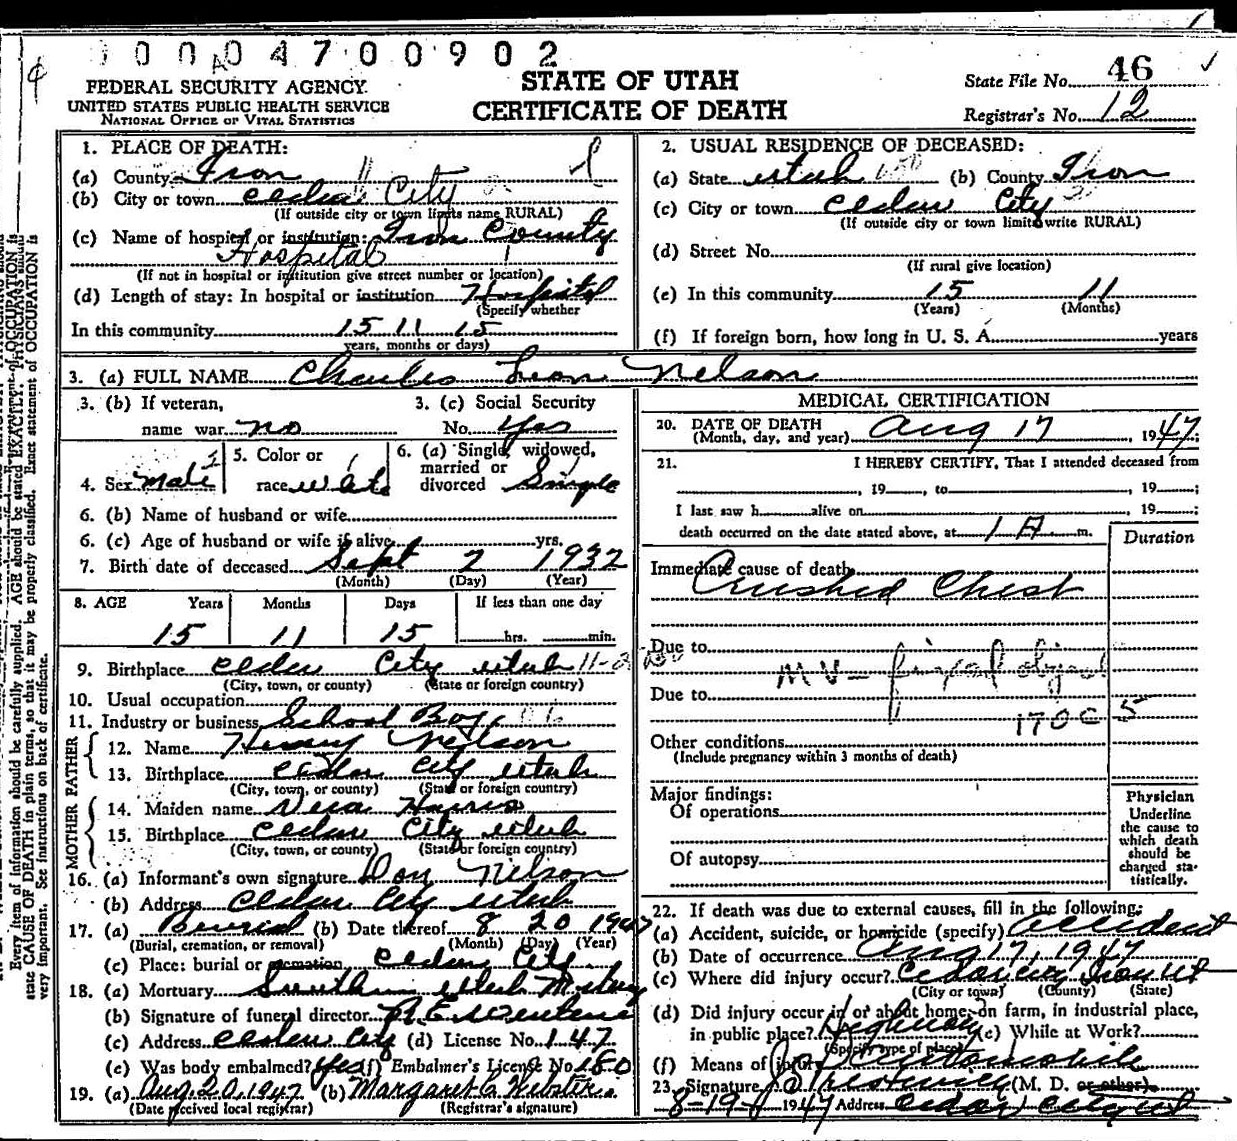 0004700902
FEDERAL SECURITY AGENCY.
UNITED STATES PUBLIC HEALTH SERVICE
NATIONAL OFFICE OF VITAL STATISTICS
STATE OF UTAH
CERTIFICATE OF DEATH
State File No. 46
Registrar's No. 12
1. PLACE OF DEATH:
(a) County Iron
(b) City or town Cedar City
(If outside city or town limits name RURAL)
(c) Name of hospital or institution: Iron County
Hospital
(If not in hospital or institution give street number or location)
(d) Length of stay: In hospital or institution Hospital
(Specify whether
In this community 15 11 15
years, months or days)
2. USUAL RESIDENCE OF DECEASED:
(a) State Utah (b) County Iron
(c) City or town Cedar City
(If outside city or town limits write RURAL)
(d) Street No.
(If rural give location)
(e) In this community 15 11
(Years) (Months)
(f) If foreign born, how long in U. S. A. years
3. (a) FULL NAME Charles Leon Nelson
3. (b) If veteran,
name war no
3. (c) Social Security
No. yes
4. Sex Male
5. Color or
race White
6. (a) Single, widowed,
married or
divorced Single
6. (b) Name of husband or wife
6. (c) Age of husband or wife if alive yrs.
7. Birth date of deceased Sept 2 1932
(Month) (Day) (Year)
8. AGE Years Months Days If less than one day
15 11 15 hrs. min.
9. Birthplace Cedar City Utah
(City, town, or county) (State or foreign country)
10. Usual occupation
11. Industry or business School Boy
FATHER
12. Name Henry Nelson
13. Birthplace Cedar City Utah
(City, town, or county) (State or foreign country)
MOTHER
14. Maiden name Vera Harris
15. Birthplace Cedar City Utah
(City, town, or county) (State or foreign country)
16. (a) Informant's own signature Don Nelson
(b) Address Cedar City Utah
17. (a) Burial (b) Date thereof 8 20 1947
(Burial, cremation, or removal) (Month) (Day) (Year)
(c) Place: burial or cremation Cedar City
18. (a) Mortuary Southern Utah
(b) Signature of funeral director
(c) Address Cedar City (d) License No. 147
(e) Was body embalmed? Yes (f) Embalmer's License No. 180
19. (a) Aug. 20, 1947 (b) Margaret C. Webster
(Date received local registrar) (Registrar's signature)
MEDICAL CERTIFICATION
20. DATE OF DEATH
(Month, day, and year) Aug 17, 1947;
21. I HEREBY CERTIFY, That I attended deceased from
, 19 , to , 19 ;
I last saw h alive on , 19 ;
death occurred on the date stated above, at 1 A m.
Duration
Immediate cause of death
Crushed Chest
Due to
MV - fixed object
Due to
170C 5
Other conditions
(Include pregnancy within 3 months of death)
Major findings:
Of operations
Of autopsy
Physician
Underline
the cause to
which death
should be
charged sta-
tistically.
22. If death was due to external causes, fill in the following:
(a) Accident, suicide, or homicide (specify) Accident
(b) Date of occurrence Aug 17, 1947
(c) Where did injury occur? Cedar City Iron Ut
(City or town) (County) (State)
(d) Did injury occur in or about home, on farm, in industrial place,
in public place? Highway (e) While at Work?
(Specify type of place)
(f) Means of injury Automobile
23. Signature (M. D. or other)
8-19- 1947 Address Cedar City Ut
Every item of information should be carefully supplied. AGE should be stated EXACTLY. PHYSICIANS should
state CAUSE OF DEATH in plain terms, so that it may be properly classified. Exact statement of OCCUPATION is
very important. See instructions on back of certificate.